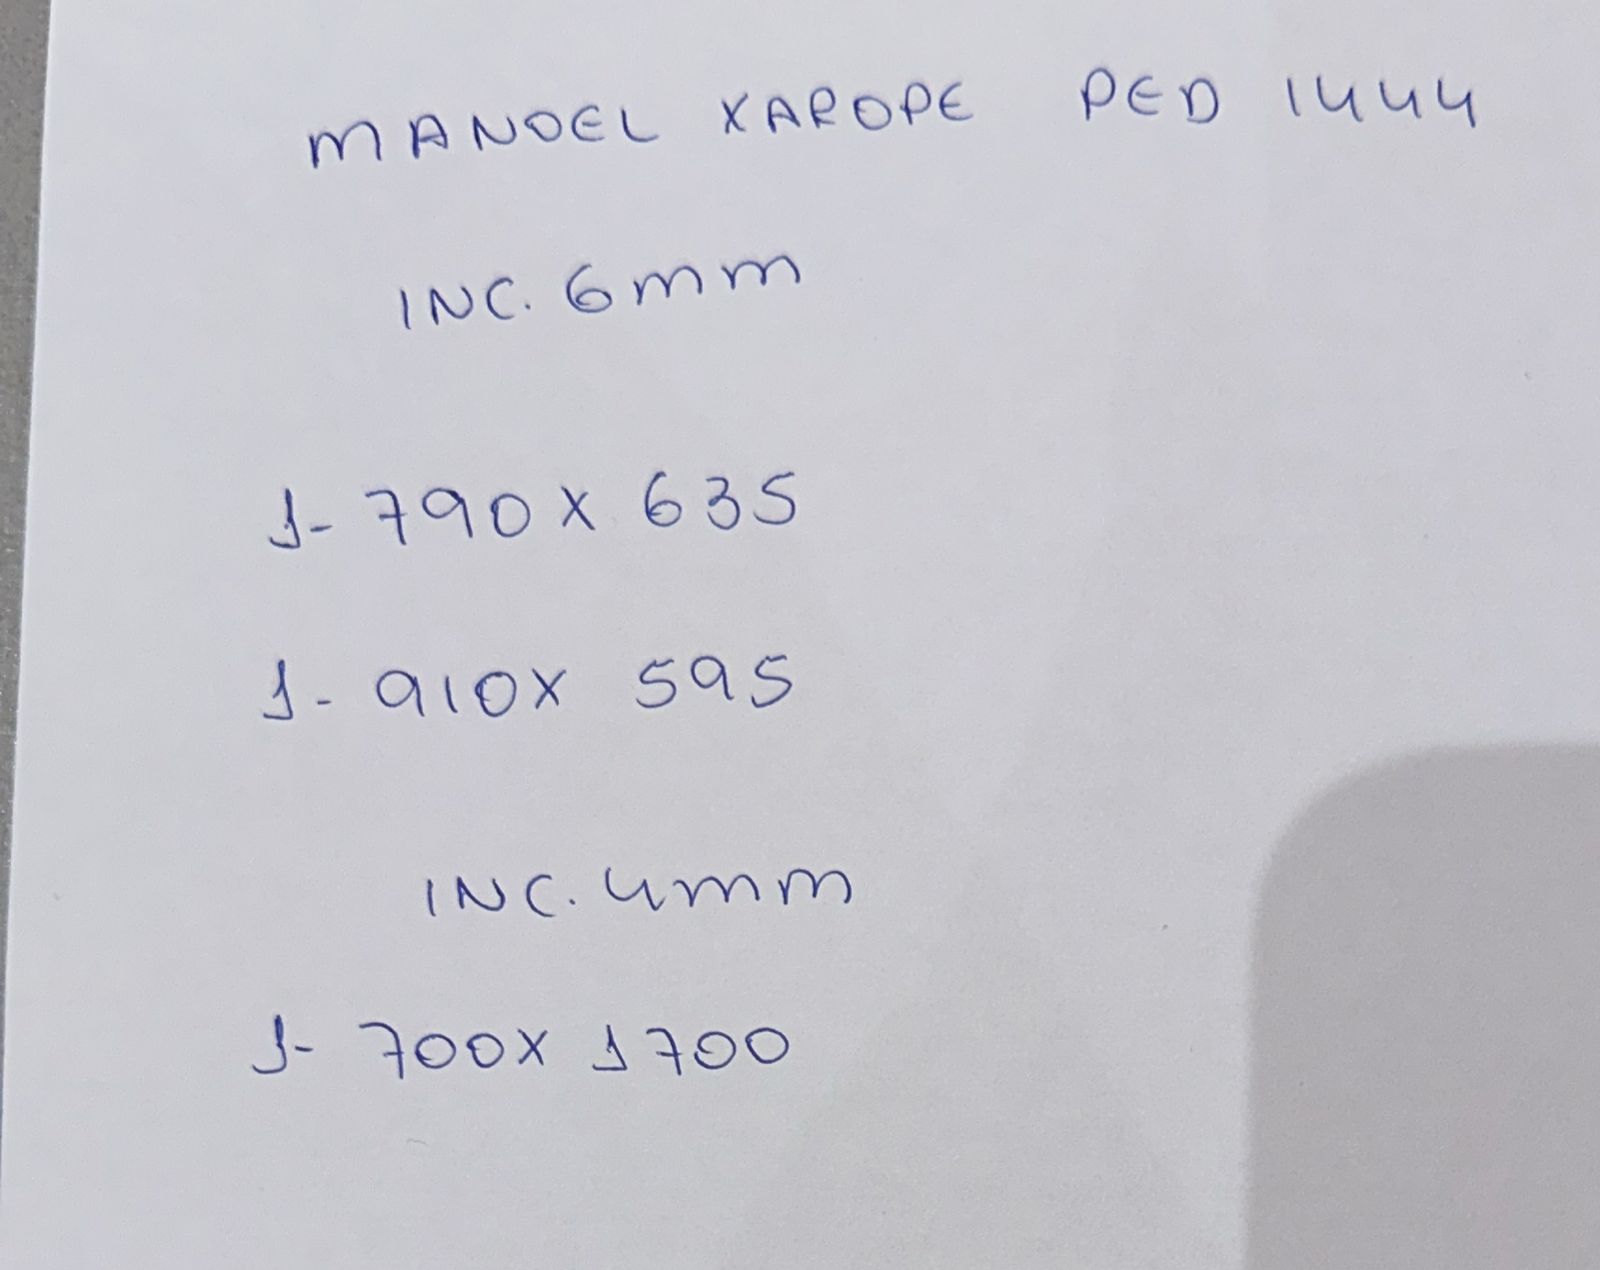 MANOEL XAROPE PED 1444
INC. 6mm
1- 790 X 635
1- 910 X 595
INC. 4mm
1- 700 X 1700